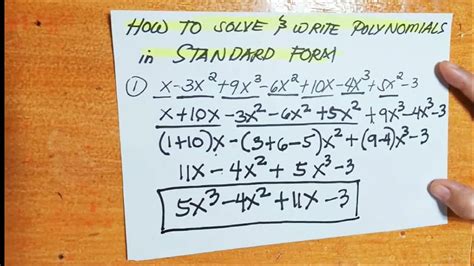 HOW TO SOLVE & WRITE POLYNOMIALS
in STANDARD FORM
① x-3x²+9x³-6x²+10x-4x³+5x²-3
x+10x-3x²-6x²+5x²+9x³-4x³-3
(1+10)x-(3+6-5)x²+(9-4)x³-3
11x-4x²+5x³-3
5x³-4x²+11x-3